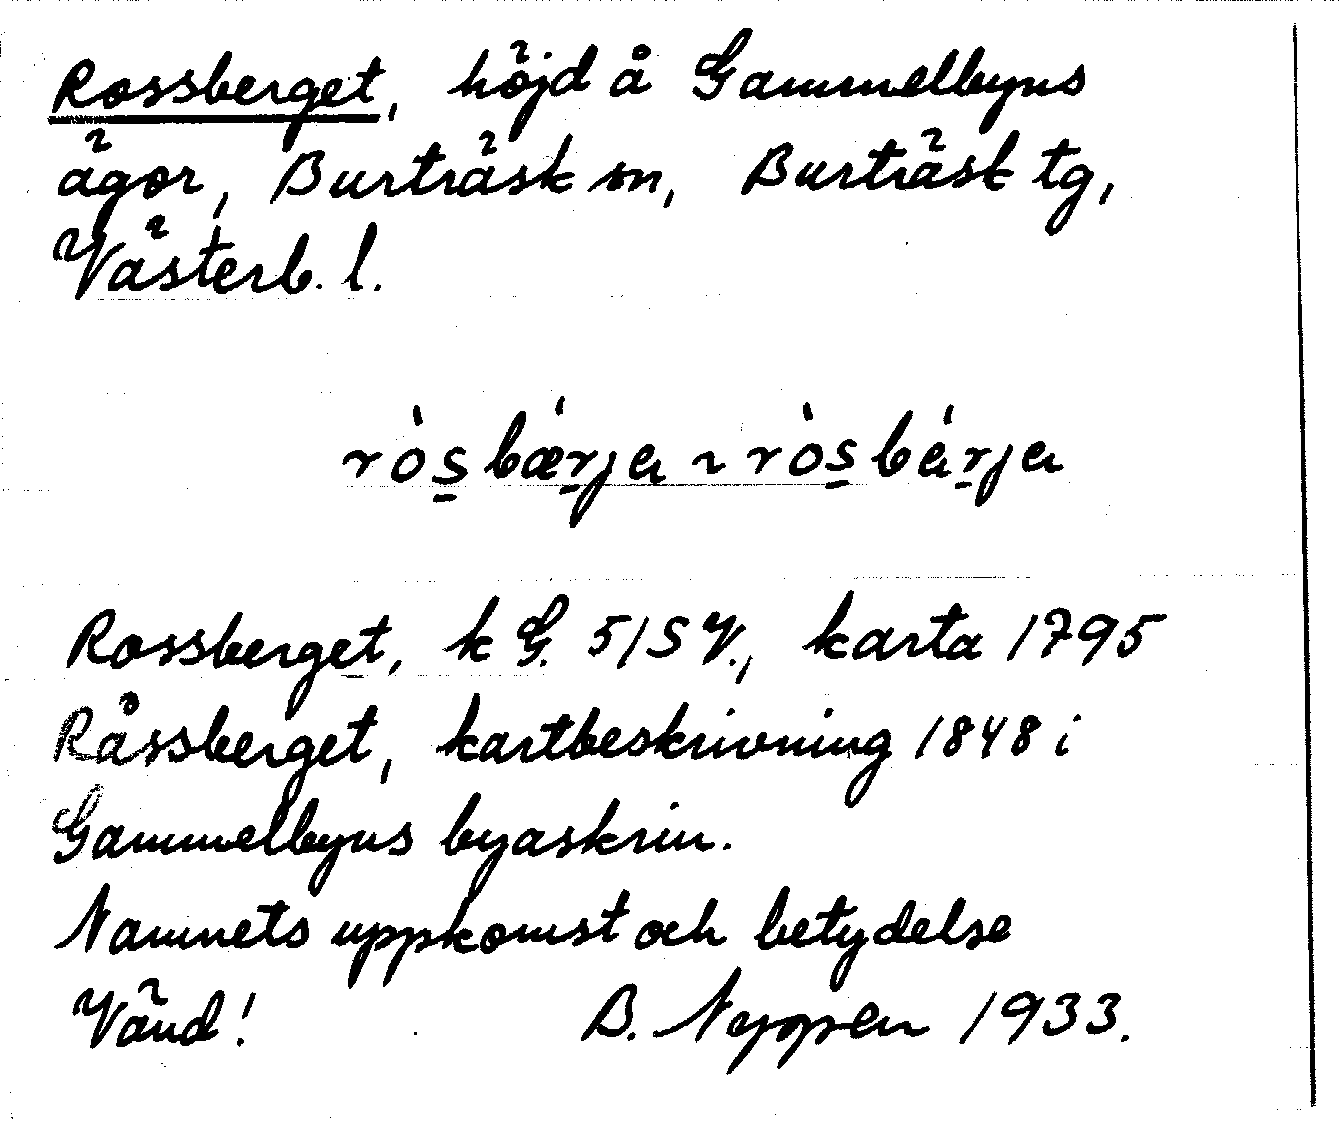 Rossberget, höjd å Gammelbyns
ägor, Burträsk sn, Burträsk tg,
Västerb. l.
ròs̱bǽṟja ~ ròs̱báṟja
Rossberget, k G. 51 S V., karta 1795
Råssberget, kartbeskrivning 1848 i
Gammelbyns byaskrin.
Namnets uppkomst och betydelse
Vänd! B. Nyppen 1933.